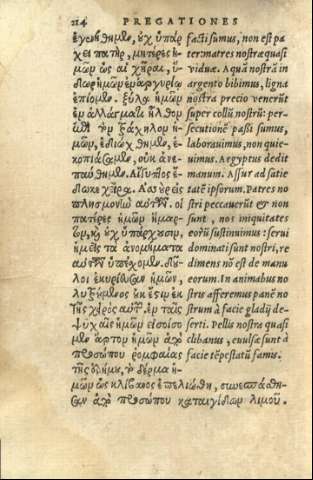 214 PREGATIONES
ἐγενήθημεν, οὐχ ὑπάρ
χει πατὴρ, μητέρες ἡ-
μῶν ὡς αἱ χῆραι, ὕ-
δωρ ἡμῶν ἐν ἀργυρίῳ
ἐπίομεν. ξύλα ἡμῶν
ἐν ἀλλάγματι ἦλθεν
τράχηλον ἡ-
μῶν, ἐδιώχθημεν, ἐ-
κοπιάσαμεν, οὐκ ἀνε-
παύθημεν. Αἴγυπτος ἔ-
δωκε χεῖρα. Ἀσσοὺρ εἰς
πλησμονὴν αὐτῶν. οἱ
πατέρες ἡμῶν ἥμαρ-
τον, καὶ οὐχ ὑπάρχουσιν,
ἡμεῖς τὰ ἀνομήματα
αὐτῶν ὑπέχομεν. δοῦ-
λοι ἐκυρίευσαν ἡμῶν,
οὐκ ἔστιν ἐκ
τῆς χειρὸς αὐτῶν. ἐν ταῖς
ψυχαῖς ἡμῶν εἰσοίσο
μεν ἄρτον ἡμῶν ἀπὸ
προσώπου ῥομφαίας
τῆς ἐρήμου, τὸ δέρμα ἡ-
μῶν ὡς κλίβανος ἐπελιώθη, συνεσπάσθη-
σαν ἀπὸ προσώπου καταιγίδων λιμοῦ.
facti sumus, non est pa
ter: matres nostræ quasi
viduæ. Aquā nostrā in
argento bibimus, ligna
nostra precio venerūt
super collū nostrū: per-
secutionē passi sumus,
laborauimus, non quie-
uimus. Aegyptus dedit
manum. Assur ad satie
tatē ipsorum. Patres no
stri peccauerūt & non
sunt, nos iniquitates
eorū sustinuimus: serui
dominati sunt nostri, re
dimens nō est de manu
eorum. In animabus no
stris afferemus panē no
strum à facie gladij de-
serti. Pellis nostra quasi
clibanus, euulsæ sunt à
facie tēpestatū famis.